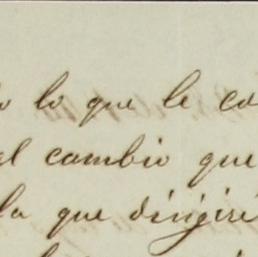 lo que le
al cambio que
la que dirigiré